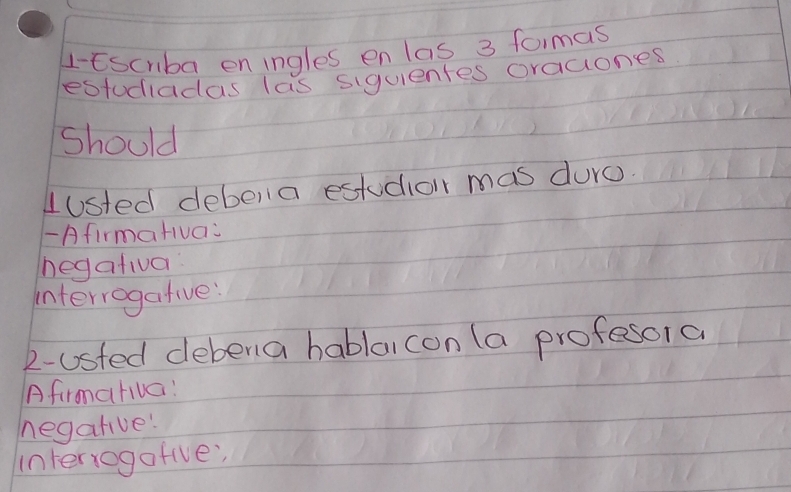 1-Escriba en ingles en las 3 formas
estudiadas las siguientes oraciones.
Should
1 Usted deberia estudiar mas duro.
-Afirmativa:
negativa
interrogative:
2-Usted deberia hablar con la profesora
Afirmativa:
negative:
interrogative: